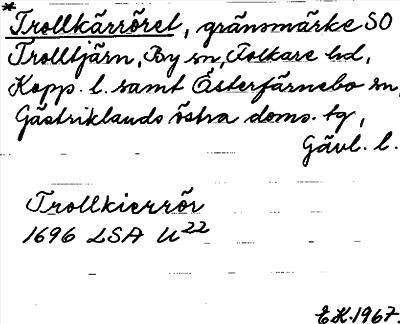 *Trollkärröret, gränsmärke SO
Trolltjärn, By sn, Folkare hd,
Kopp. l. samt Österfärnebo sn,
Gästriklands östra doms. tg,
Gävl. l.
Trollkierrör
1696 LSA U22
E.H. 1967.